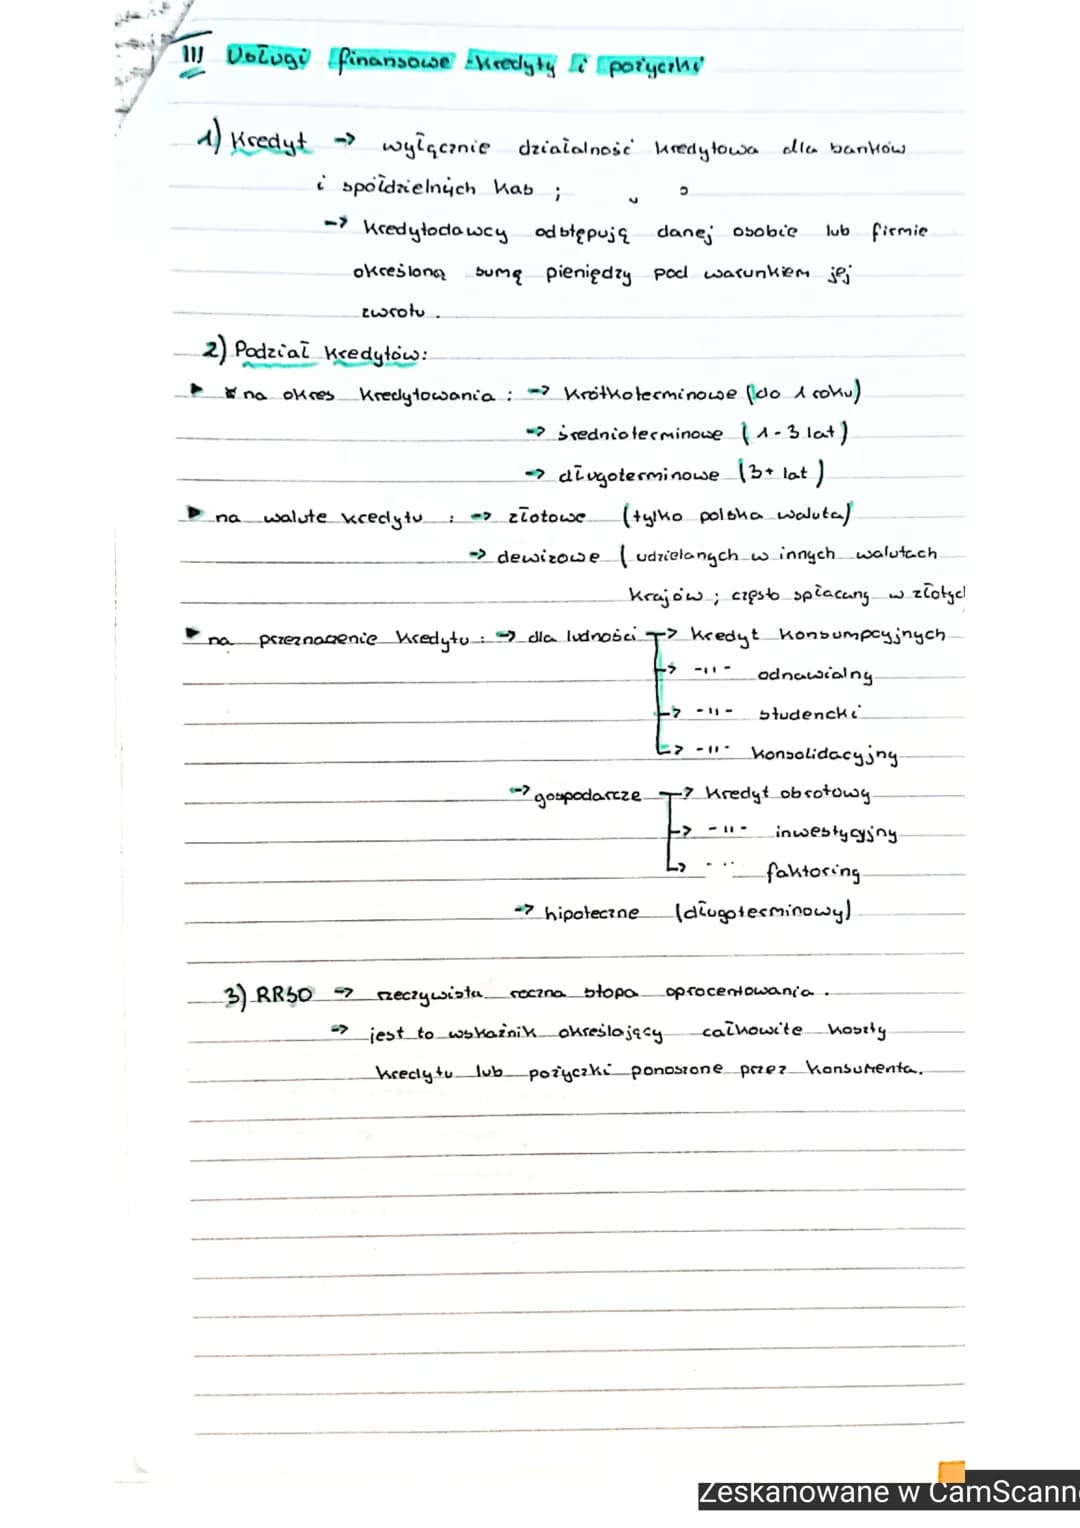 III Usługi finansowe - kredyty i pożyczki
1) Kredyt → wyłącznie działalność kredytowa dla banków
i spółdzielnych kas ;
→ kredytodawcy odstępują danej osobie lub firmie
określoną sumę pieniędzy pod warunkiem jej
zwrotu .
2) Podział kredytów:
► na okres kredytowania : → krótkoterminowe (do 1 roku)
→ średnioterminowe ( 1 - 3 lat )
→ długoterminowe (3+ lat )
► na walute kredytu : → złotowe (tylko polska waluta)
→ dewizowe ( udzielanych w innych walutach
krajów ; często spłacany w złotych
► na przeznaczenie kredytu : → dla ludności → kredyt konsumpcyjnych
→ -11- odnawialny
→ -11- studencki
→ -11- konsolidacyjny
→ gospodarcze → kredyt obrotowy
→ -11- inwestycyjny
→ faktoring
→ hipoteczne (długoterminowy)
3) RRSO → rzeczywista roczna stopa oprocentowania .
→ jest to wskaźnik określający całkowite koszty
kredytu lub pożyczki ponoszone przez konsumenta.
Zeskanowane w CamScann